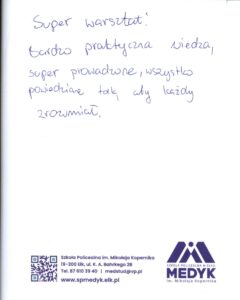 Super warsztat!
Bardzo praktyczna wiedza,
super prowadzone, wszystko
powiedziane tak, aby każdy
zrozumiał.
Szkoła Policealna im. Mikołaja Kopernika
19-300 Ełk, ul. K. A. Bahrkego 2B
Tel. 87 610 39 40 | medstud@vp.pl
www.spmedyk.elk.pl
SZKOŁA POLICEALNA W EŁKU
MEDYK
im. Mikołaja Kopernika